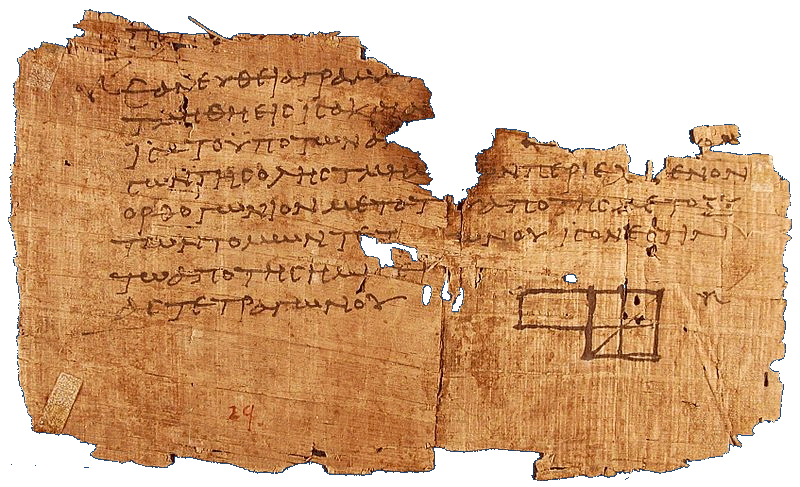 ΕΑΝΕΥΘΕΙΑΓΡΑΜΜ
ΤΜΗΘΗΕΙCΙCΑΚΑΙΑ
ΙCΑΤΟΥΠΟΤΩΝΑ
CΩΝΤΗCΟΛΗCΤΜΗΜ ΩΝΠΕΡΙΕΧ ΜΕΝΟΝ
ΟΡΘΟΓΩΝΙΟΝΜΕΤΑΤ ΥΑΠΟΤΗCΜΕΤΟΞΥ
ΤΩΝΤΟΜΩΝΤΕΤ ΩΝΟΥΙCΟΝΕCΤΙΝ
ΤΩΑΠΟΤΗCΗΜΙ ΕΙ
ΑCΤΕΤΡΑΓΩΝΟΥ
29.